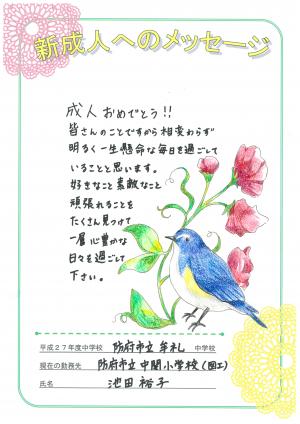 新成人へのメッセージ
成人おめでとう!!
皆さんのことですから相変わらず
明るく一生懸命な毎日を過ごして
いることと思います。
好きなこと素敵なこと
頑張れることを
たくさん見つけて
一層心豊かな
日々を過ごして
下さい。
平成27年度中学校 防府市立 牟礼 中学校
現在の勤務先 防府市立中関小学校(図工)
氏名 池田 裕子